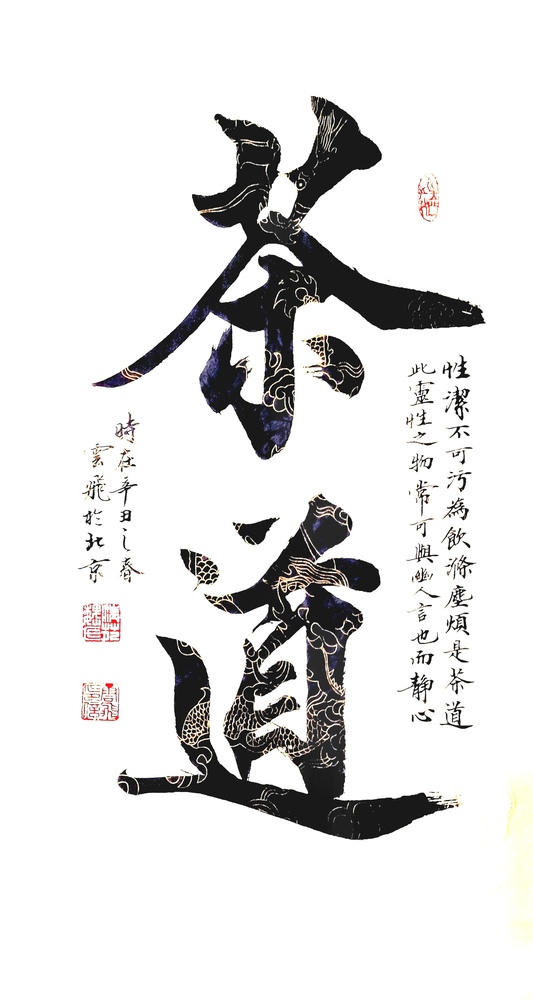 茶道
性潔不可污為飲滌塵煩是茶道
此靈性之物常可與幽人言也而静心
時在辛丑之春
雲飛於北京